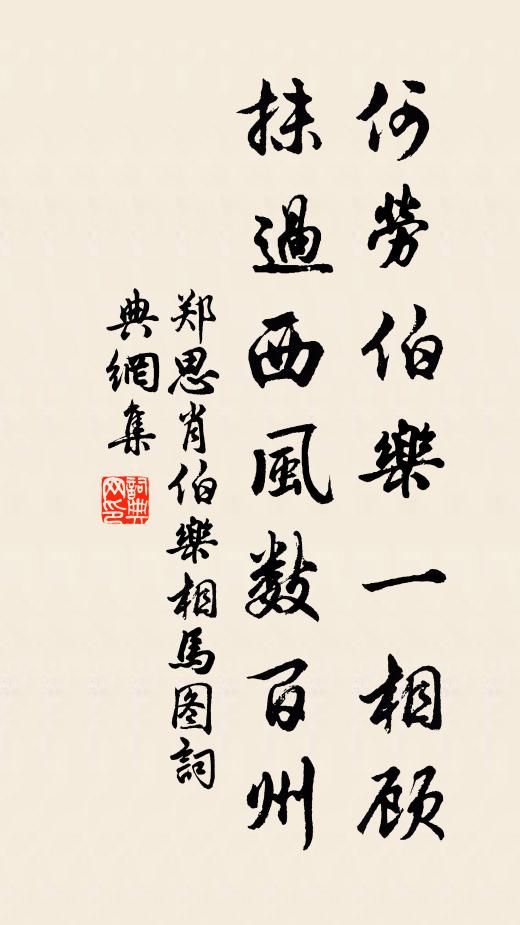 何勞伯樂一相顾
抹過西風数百州
郑思肖伯樂相馬图詞
典網集
詞典网印